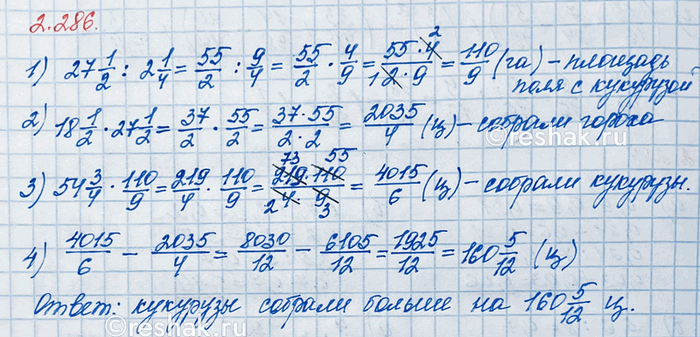 2.286.
1) 27 1/2 : 2 1/4 = 55/2 : 9/4 = 55/2 · 4/9 = 55·4 2/1 2·9 = 110/9 (га) – площадь
поля с кукурузой
2) 18 1/2 · 27 1/2 = 37/2 · 55/2 = 37·55/2·2 = 2035/4 (ц) – собрали гороха
3) 54 3/4 · 110/9 = 219/4 · 110/9 = 73 219·110 55/2 4·9 3 = 4015/6 (ц) – собрали кукурузы.
4) 4015/6 – 2035/4 = 8030/12 – 6105/12 = 1925/12 = 160 5/12 (ц)
Ответ: кукурузы собрали больше на 160 5/12 ц.
©reshak.ru